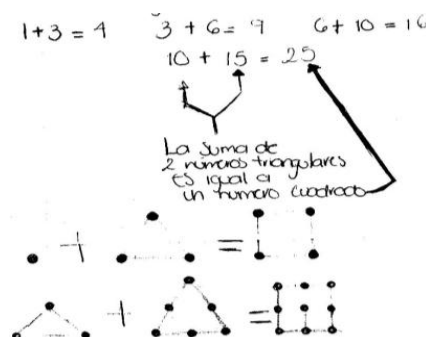 1+3 = 4 3 + 6 = 9 6 + 10 = 16
10 + 15 = 25
La suma de
2 numeros triangulares
es igual a
un numero cuadrado
+ =
+ =